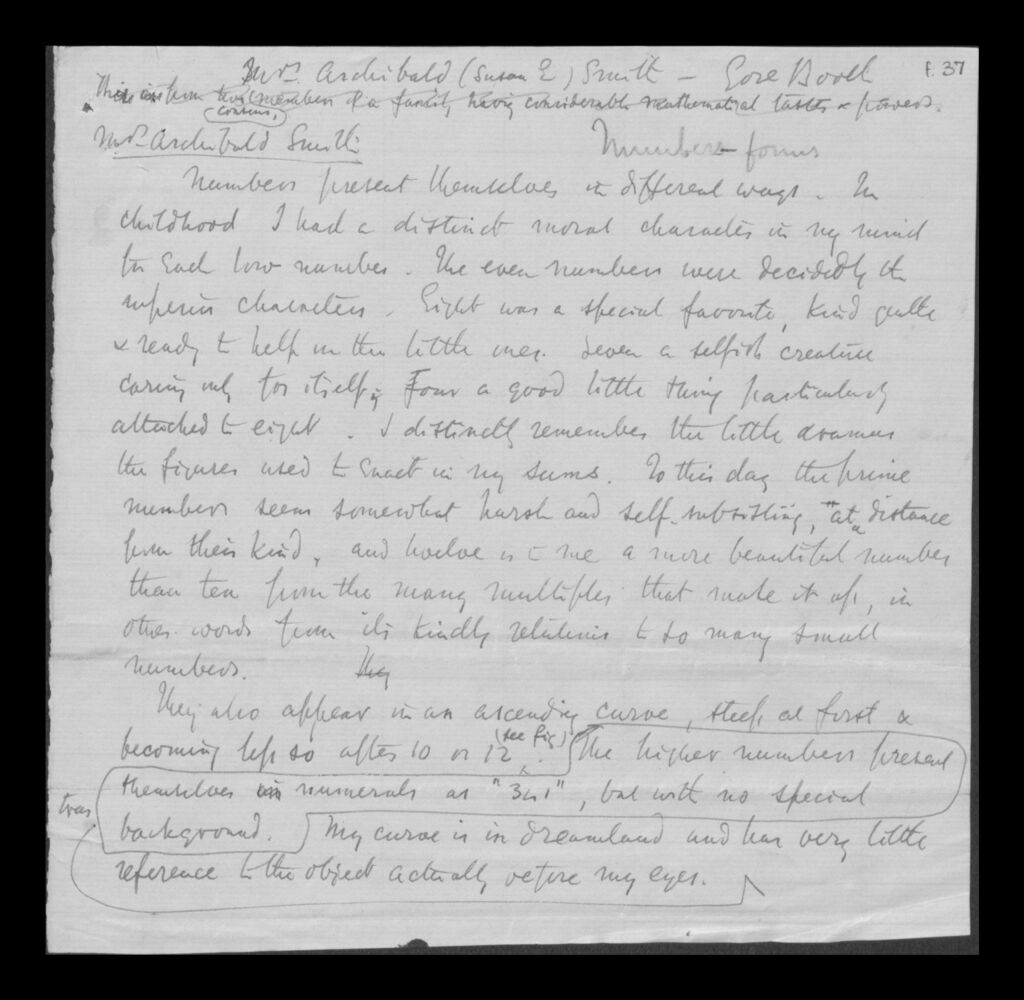 Mrs. Archibald (Susan E) Smith – Gore Booth
f. 37
This is from two members of a family having considerable mathematical tastes & powers.
(cousins,)
Mrs. Archibald Smith
Number-forms
Numbers present themselves in different ways. In
childhood I had a distinct moral character in my mind
for each low number. The even numbers were decidedly the
superior characters. Eight was a special favorite, kind gentle
& ready to help on the little ones. Seven a selfish creature
caring only for itself; Four a good little thing particularly
attached to eight. I distinctly remember the little dramas
the figures used to enact in my sums. To this day the prime
numbers seem somewhat harsh and self-subsisting, "at a distance
from their kind, and twelve is to me a more beautiful number
than ten from the many multiples that make it up, in
other words from its kindly relations to so many small
numbers. They
They also appear in an ascending curve, steep at first &
becoming less so after 10 or 12 (see fig). The higher numbers present
themselves in numerals as "341", but with no special
background. My curve is in dreamland and has very little
trans.
reference to the object actually before my eyes.